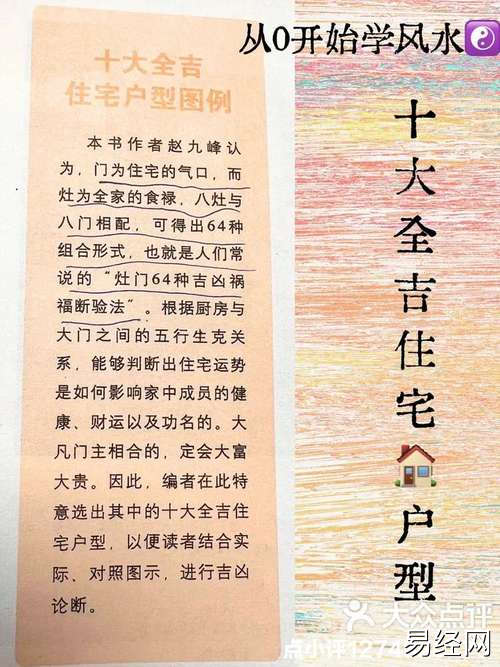 从0开始学风水☯
十大全吉
住宅户型图例
本书作者赵九峰认
为，门为住宅的气口，而
灶为全家的食禄，八灶与
八门相配，可得出64种
组合形式，也就是人们常
说的“灶门64种吉凶祸
福断验法”。根据厨房与
大门之间的五行生克关
系，能够判断出住宅运势
是如何影响家中成员的健
康、财运以及功名的。大
凡门主相合的，定会大富
大贵。因此，编者在此特
意选出其中的十大全吉住
宅户型，以便读者结合实
际、对照图示，进行吉凶
论断。
十大全吉住宅🏠户型
大众点评
点小评1274
易经网